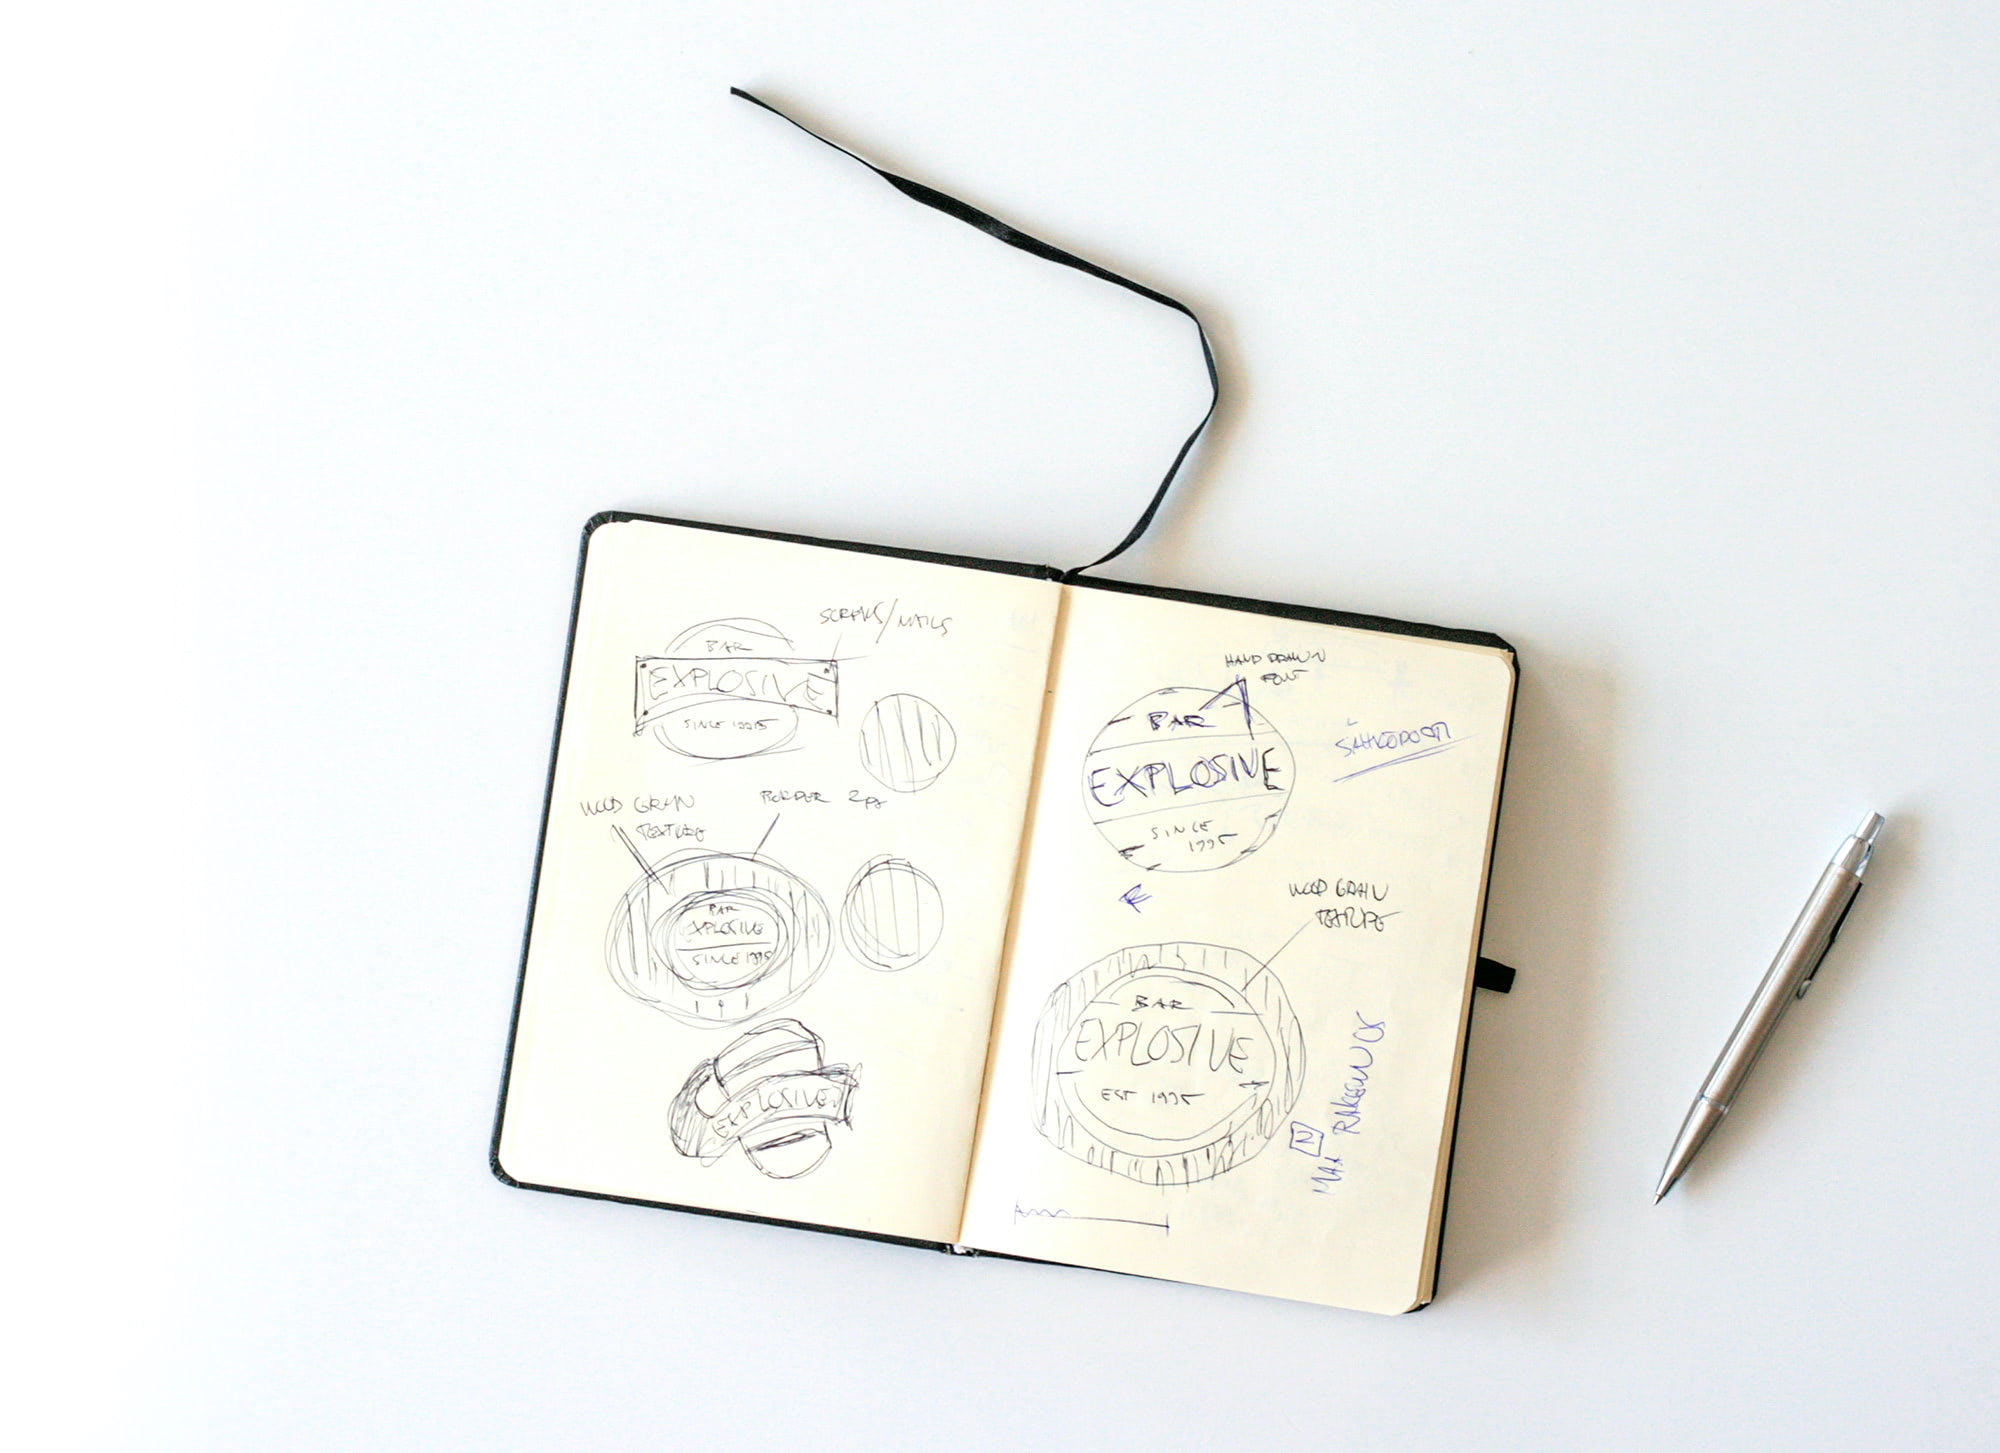 SCREWS/NAILS
BAR
EXPLOSIVE
SINCE 1995
WOOD GRAIN
TEXTURE
BORDER 2px
BAR
EXPLOSIVE
SINCE 1995
EXPLOSIVE
HAND DRAWN
FONT
BAR
EXPLOSIVE
SINCE
1995
SÄHKÖPOSTI
WOOD GRAIN
TEXTURE
BAR
EXPLOSIVE
EST 1995